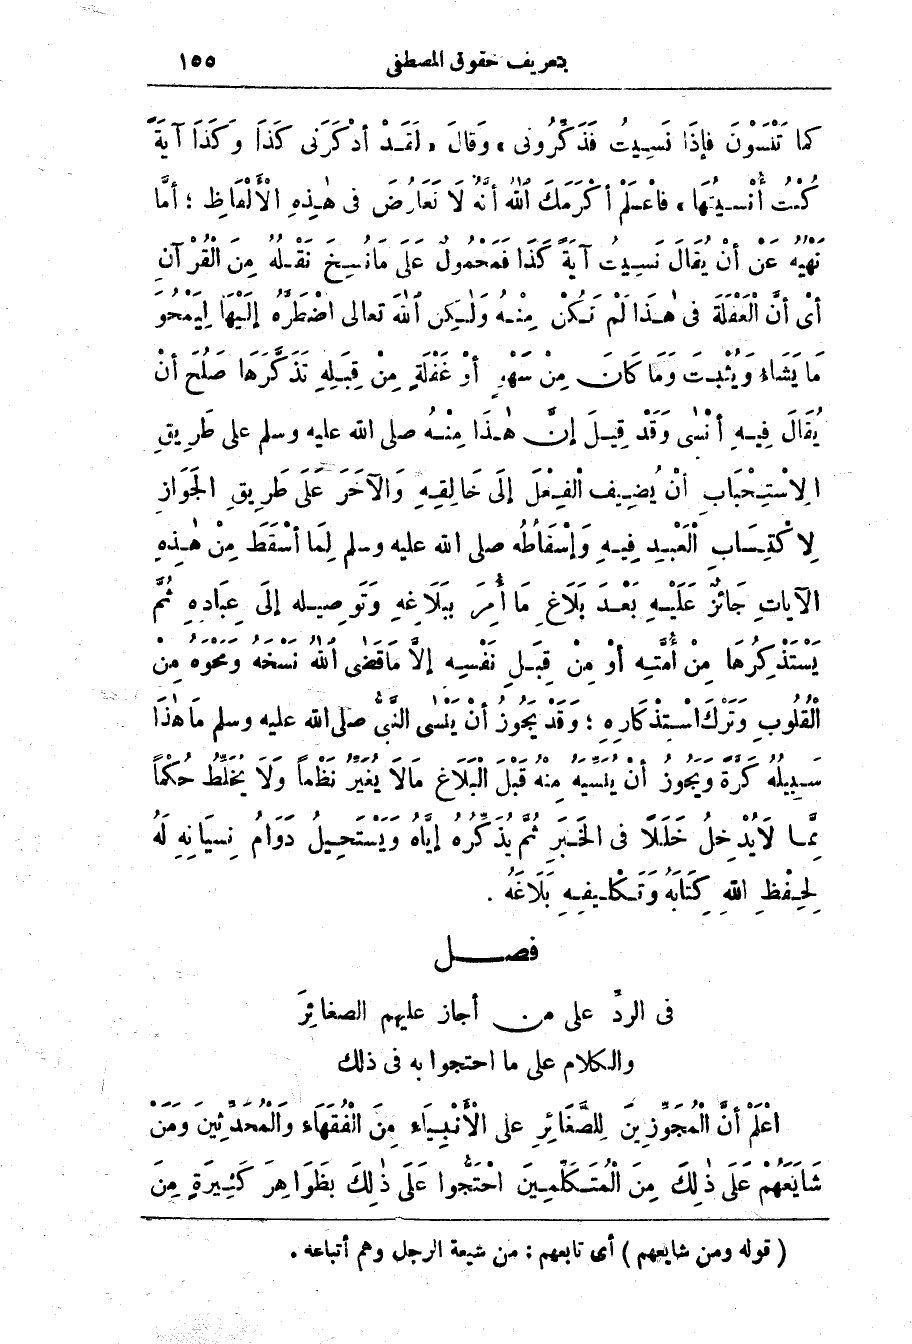 بتعريف حقوق المصطفى ١٥٥
كما تَنْسَوْنَ فإذَا نَسِيتُ فَذَكِّرُونى ، وَقالَ ، لَقَدْ أذْكَرَنى كَذَا وَكَذَا آيَةً
كُنْتُ أُنْسِيتُهَا ، فاْعلَمْ أكْرَمَكَ اللهُ أنَّهُ لَا تَعَارُضَ فى هٰذِهِ الْأَلْفَاظِ ؛ أمَّا
نَهْيُهُ عَنْ أنْ يُقَالَ نَسِيتُ آيَةَ كَذَا فَمَحْمُولٌ عَلَى مَا نُسِخَ نَقْلُهُ مِنَ الْقُرْآنِ
أىْ أنَّ الْغَفْلَةَ فى هٰذَا لَمْ تَكُنْ مِنْهُ وَلٰكِن اللهَ تعالى اضْطَرَّهُ إلَيْهَا لِيَمْحُوَ
مَا يَشَاءُ وَيُثْبِتَ وَمَا كَانَ مِنْ سَهْوٍ أوْ غَفْلَةٍ مِنْ قِبَلِهِ تَذَكَّرَهَا صَلُحَ أنْ
يُقَالَ فِيهِ أنْسٰى وَقَدْ قِيلَ إنَّ هٰذَا مِنْهُ صلى الله عليه وسلم على طَرِيقِ
الِاسْتِحْبَابِ أنْ يُضِيفَ الْفِعْلَ إلَى خَالِقِهِ وَالآخَرَ عَلَى طَرِيقِ الجَوَازِ
لِاكْتِسَابِ الْعَبْدِ فِيهِ وَإسْقَاطُهُ صلى الله عليه وسلم لِمَا أسْقَطَ مِنْ هٰذِهِ
الآيَاتِ جَائِزٌ عَلَيْهِ بَعْدَ بَلَاغِ مَا أُمِرَ بِبَلَاغِهِ وَتَوْصِيلِهِ إلَى عِبَادِهِ ثُمَّ
يَسْتَذْكِرُهَا مِنْ أُمَّتِهِ أوْ مِنْ قِبَلِ نَفْسِهِ إلَّا مَا قَضٰى اللهُ نَسْخَهُ وَمَحْوَهُ مِنَ
الْقُلُوبِ وَتَرْكَ اسْتِذْكَارِهِ ؛ وَقَدْ يَجُوزُ أنْ يَنْسٰى النَّبىُّ صلى الله عليه وسلم مَا هٰذَا
سَبِيلُهُ كَرَّةً وَيَجُوزُ أنْ يُنَسِّيَهُ مِنْهُ قَبْلَ الْبَلَاغِ مَالَا يُغَيِّرُ نَظْماً وَلَا يُخَلِّطُ حُكْماً
مِمَّا لَايُدْخِلُ خَلَلًا فى الخَبَرِ ثُمَّ يُذَكِّرُهُ إيَّاهُ وَيَسْتَحِيلُ دَوَامُ نِسيَانِهِ لَهُ
لِحِفْظِ اللهِ كِتَابَهُ وَتَكْلِيفِهِ بَلَاغَهُ .
فصل
فى الردِّ على من أجاز عليهم الصغائِرَ
والكلام على ما احتجوا به فى ذلك
اعْلَمْ أنَّ الْمُجَوِّزِينَ لِلصَّغَائِرِ على الْأَنْبِيَاءِ مِنَ الْفُقَهَاءِ وَالْمُحَدِّثِينَ وَمَنْ
شَايَعَهُمْ عَلَى ذٰلِكَ مِنَ الْمُتَكَلِّمِينَ احْتَجُّوا عَلَى ذٰلِكَ بِظَوَاهِرَ كَثِيرَةٍ مِنَ
( قوله ومن شايعهم ) أى تابعهم : من شيعة الرجل وهم أتباعه .